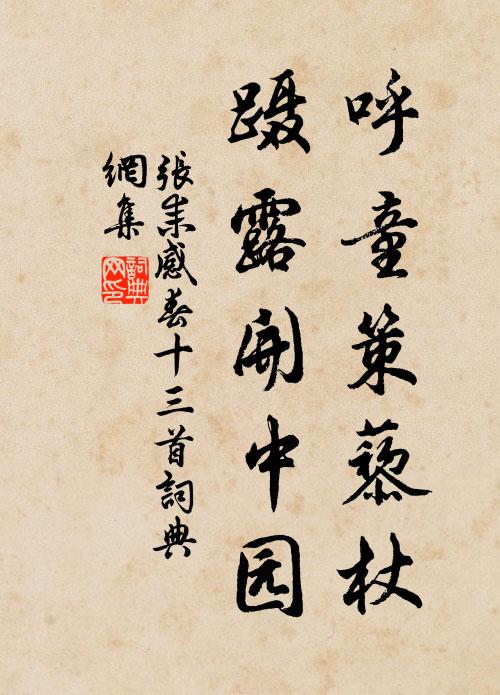 呼童策藜杖
蹑露開中园
張耒感春十三首詞典
網集
詞典網印